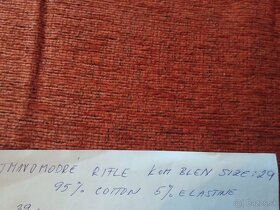 TMAVOMODRÉ RIFLE KOM BLEN SIZE: 29
95% COTTON 5% ELASTINE
29